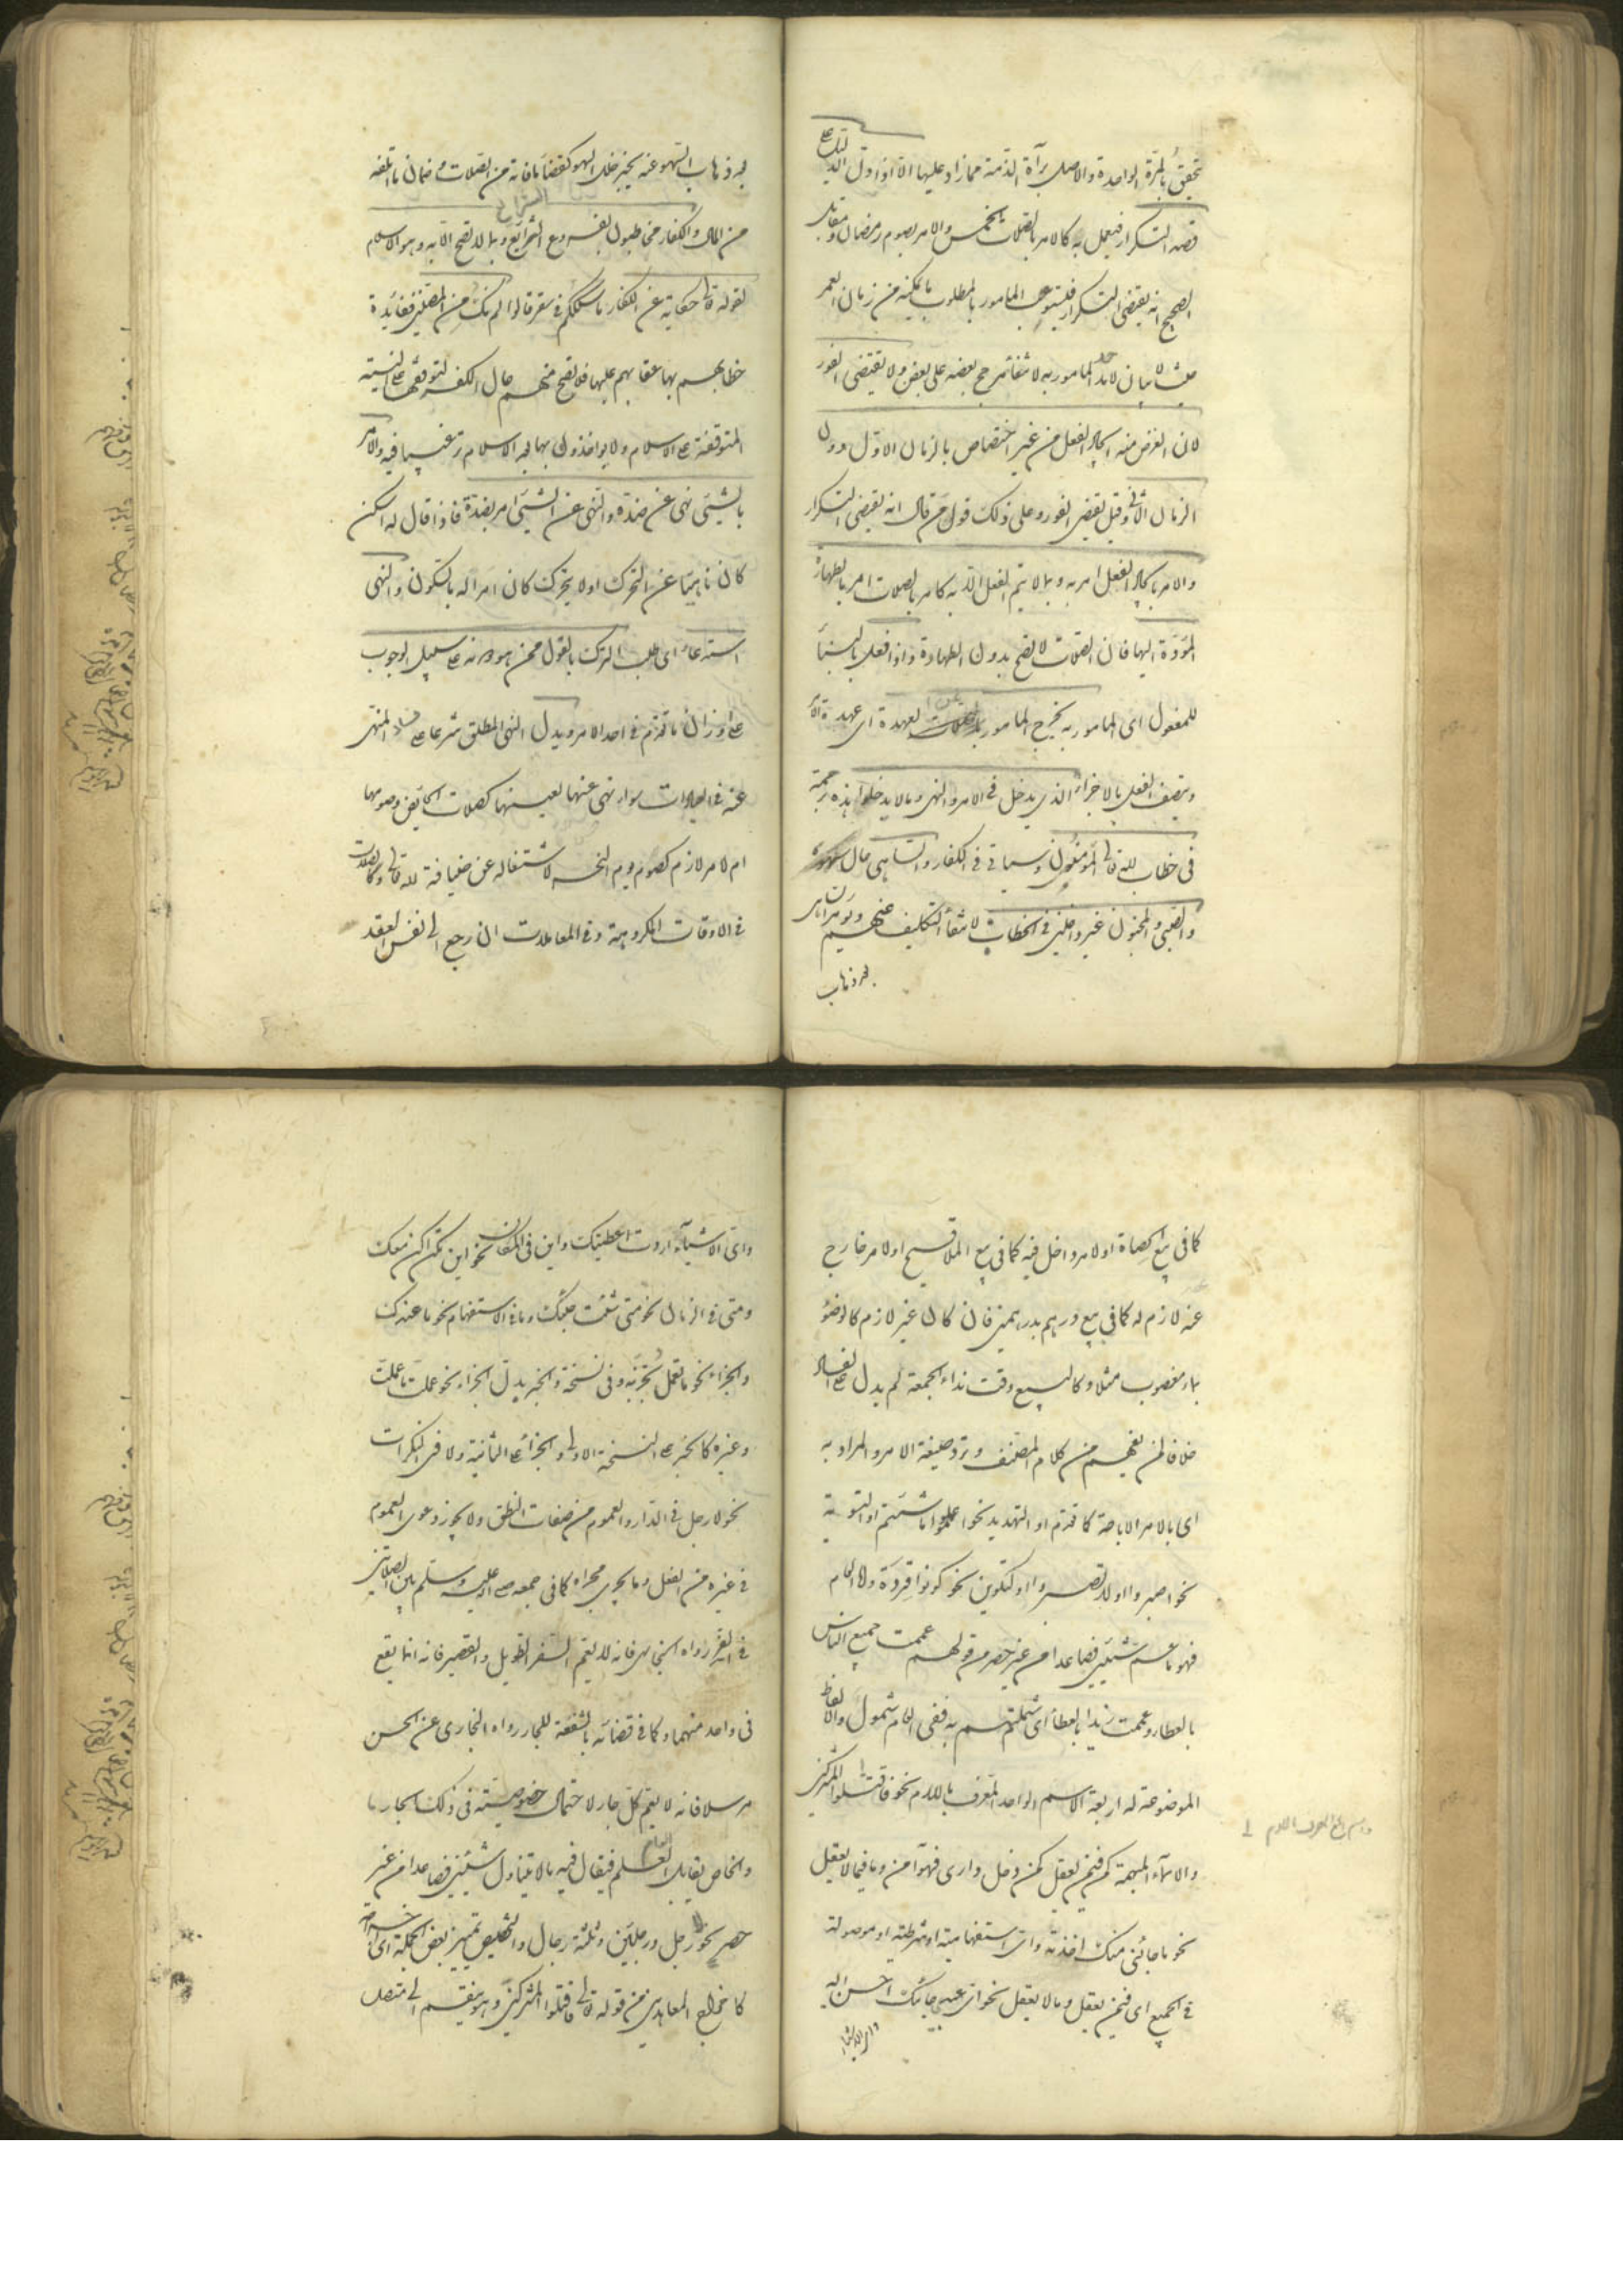 يتحقق بالمرة الواحدة والاصل برآة الذمة مما زاد عليها الا اذا دل الدليل على
قصد التكرار فيعمل به كالامر بالصلات الخمس والامر بصوم رمضان ومقابل
الصحيح انه يقتضى التكرار فيستوعب المامور بالمطلوب ما يمكنه من زمان العمر
حيث لا بيان لامد المامور به لانتفاء مرجح بعضه على بعض ولا يقتضى الفور
لان الغرض منه ايجاد الفعل من غير اختصاص بالزمان الاول دون
الزمان الثانى وقيل يقتضى الفور وعلى ذلك قول من قال انه يقتضى التكرار
والامر بايجاد الفعل امر به وبما لا يتم الفعل الا به كامر بالصلات امر بالطهارة
المؤدة اليها فان الصلات لا تصح بدون الطهارة واذا فعل بالبناء
للمفعول اى المامور به يخرج المامور عن العهدة اى عهدة الامر
ويتصف الفعل بالاجزاء الذى يدخل فى الامر والنهى وما لا يدخل هذه ترجمة
فى خطاب الله تعالى المؤمنون وسياتى فى الكفار والساهى حال سهوه
والصبى والمجنون غير داخلين فى الخطاب لانتفاء التكليف عنهم ويؤمر الساهى
بعد ذهاب
بعد ذهاب السهو عنه بجبر خلل السهو كقضاء ما فاته من الصلات وضمان ما اتلفه
من المال والكفار مخاطبون بفروع الشرائع وبما لا تصح الا به وهو الاسلام
لقوله تعالى حكاية عن الكفار ما سلككم فى سقر قالوا لم نك من المصلين ففائدة
خطابهم بها عقابهم عليها فلا تصح منهم حال الكفر لتوقفها على النية
المتوقفة على الاسلام ولا يواخذون بها بعد الاسلام ترغيبا فيه والامر
بالشيئ نهى عن ضده والنهى عن الشيئ امر بضده فاذا قال له اسكن
كان ناهيا عن التحرك او لا يتحرك كان امرا له بالسكون والنهى
استدعاء اى طلب الترك بالقول ممن هو دونه على سبيل الوجوب
على وزان ما تقدم فى احد الامر ويدل النهى المطلق شرعا على فساد المنهى
عنه فى العبادات سواء نهى عنها لعينها كصلات الحايض وصومها
ام لامر لازم كصوم يوم النحر لاشتغاله عن ضيافة لله تعالى وكالصلات
فى الاوقات المكروهة وفى المعاملات ان رجع الى نفس العقد
كما فى بيع الحصاة او لامر داخل فيه كما فى بيع الملاقيح او لامر خارج
عنه لازم له كما فى بيع درهم بدرهمين فان كان غير لازم كالوضؤ
بماء مغصوب مثلا وكالبيع وقت نداء الجمعة لم يدل على الفساد
خلافا لمن يفهم من كلام المصنف وترد صيغة الامر والمراد به
اى بالامر الاباحة كما تقدم او التهديد نحو اعملوا ما شئتم او التسوية
نحو اصبروا او لا تصبروا او التكوين نحو كونوا قردة واما العام
فهو ما عم شيئين فصاعدا من غير حصر من قولهم عممت جميع الناس
بالعطاء وعممت زيدا بالعطاء اى شملتهم به ففى العام شمول والفاظ
الموضوعة له اربعة الاسم الواحد المعرف باللام نحو فاقتلوا المشركين
واسم الجمع المعرف باللام
والاسماء المبهمة كمن فيمن يعقل كمن دخل دارى فهو آمن وما فيما لا يعقل
نحو ما جائنى منك اخذته واى استفهامية او شرطية او موصولة
فى الجميع اى فيمن يعقل وما لا يعقل نحو اى عبيدى جائك احسن اليه
واى الاشياء
واى الاشيآء اردت اعطيتك واين فى المكان نحو اين تكن اكن معك
ومتى فى الزمان نحو متى شئت جئتك وما فى الاستفهام نحو ما عندك
والجزاء نحو ما تعمل تجز به وفى نسخة والخبر بدل الجزاء نحو عملت ما عملت
وغيره كالخبر على النسخة الاولى والجزاء على الثانية ولا فى النكرات
نحو لا رجل فى الدار والعموم من صفات النطق ولا يجوز دعوى العموم
فى غيره من الفعل وما يجرى مجراه كما فى جمعه صلى الله عليه وسلم بين الصلاتين
فى السفر رواه البخارى فانه لا يعم السفر الطويل والقصير فانه انما يقع
فى واحد منهما وكما فى قضائه بالشفعة للجار رواه النجارى عن الحسن
مرسلا فانه لا يعم كل جار لاحتمال خصوصيته فى ذلك الجار
والخاص يقابل العام فيقال فيه ما لا يتناول شيئين فصاعدا من غير
حصر نحو رجل ورجلين وثلثة رجال والتخصيص تمييز بعض الجملة اى اخراجه
كاخراج المعاهدين من قوله تعالى فاقتلوا المشركين وهو ينقسم الى متصل